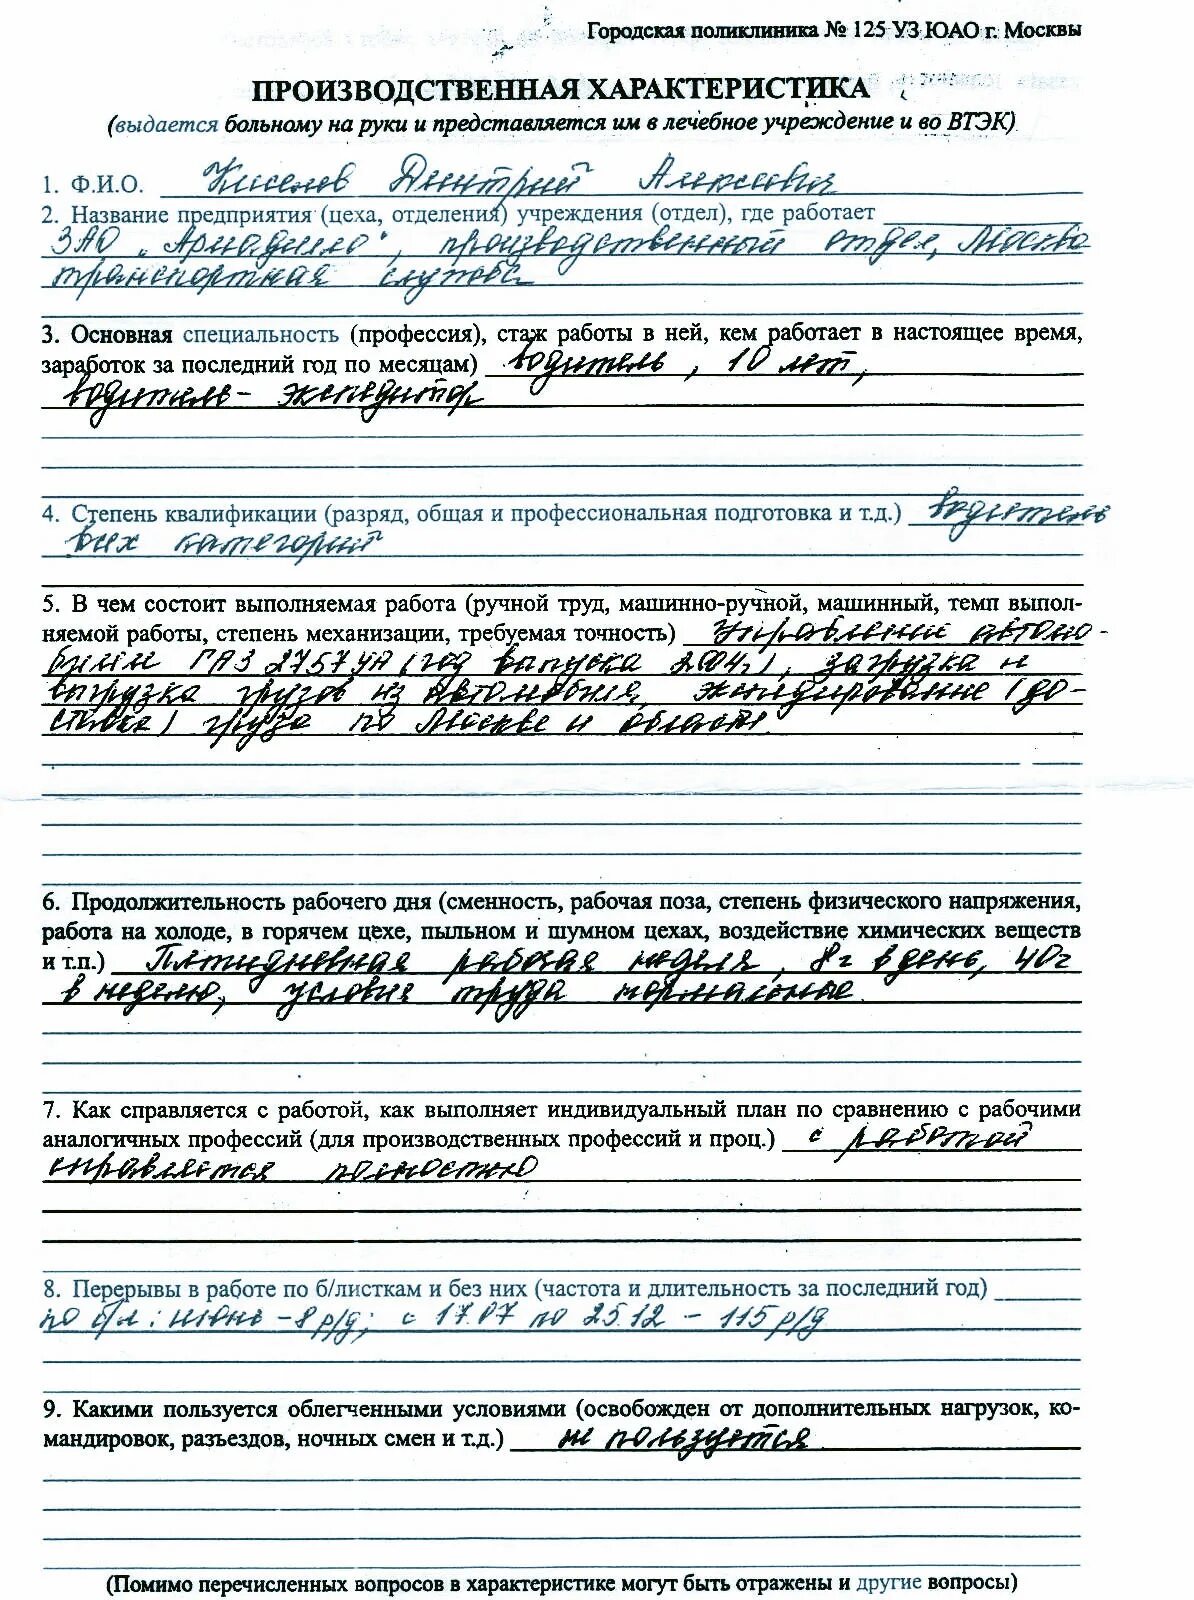 Городская поликлиника № 125 УЗ ЮАО г. Москвы
ПРОИЗВОДСТВЕННАЯ ХАРАКТЕРИСТИКА
(выдается больному на руки и представляется им в лечебное учреждение и во ВТЭК)
1. Ф.И.О. Киселев Дмитрий Алексеевич
2. Название предприятия (цеха, отделения) учреждения (отдел), где работает
ЗАО „Армадилло", производственный отдел, Москва
транспортная служба
3. Основная специальность (профессия), стаж работы в ней, кем работает в настоящее время,
заработок за последний год по месяцам) водитель, 10 лет,
водитель - экспедитор
4. Степень квалификации (разряд, общая и профессиональная подготовка и т.д.) водитель
всех категорий
5. В чем состоит выполняемая работа (ручной труд, машинно-ручной, машинный, темп выпол-
няемой работы, степень механизации, требуемая точность) Управление автомо-
билем ГАЗ 2757УА (год выпуска 2004г.), загрузка и
выгрузка грузов из автомобиля, экспедирование (до-
ставка) груза по Москве и области.
6. Продолжительность рабочего дня (сменность, рабочая поза, степень физического напряжения,
работа на холоде, в горячем цехе, пыльном и шумном цехах, воздействие химических веществ
и т.п.) Пятидневная рабочая неделя, 8 ч в день, 40 ч
в неделю, условия труда нормальные.
7. Как справляется с работой, как выполняет индивидуальный план по сравнению с рабочими
аналогичных профессий (для производственных профессий и проц.) с работой
справляется полностью
8. Перерывы в работе по б/листкам и без них (частота и длительность за последний год)
по б/л: июнь - 8 р/д; с 17.07 по 25.12 - 115 р/д
9. Какими пользуется облегченными условиями (освобожден от дополнительных нагрузок, ко-
мандировок, разъездов, ночных смен и т.д.) не пользуется
(Помимо перечисленных вопросов в характеристике могут быть отражены и другие вопросы)